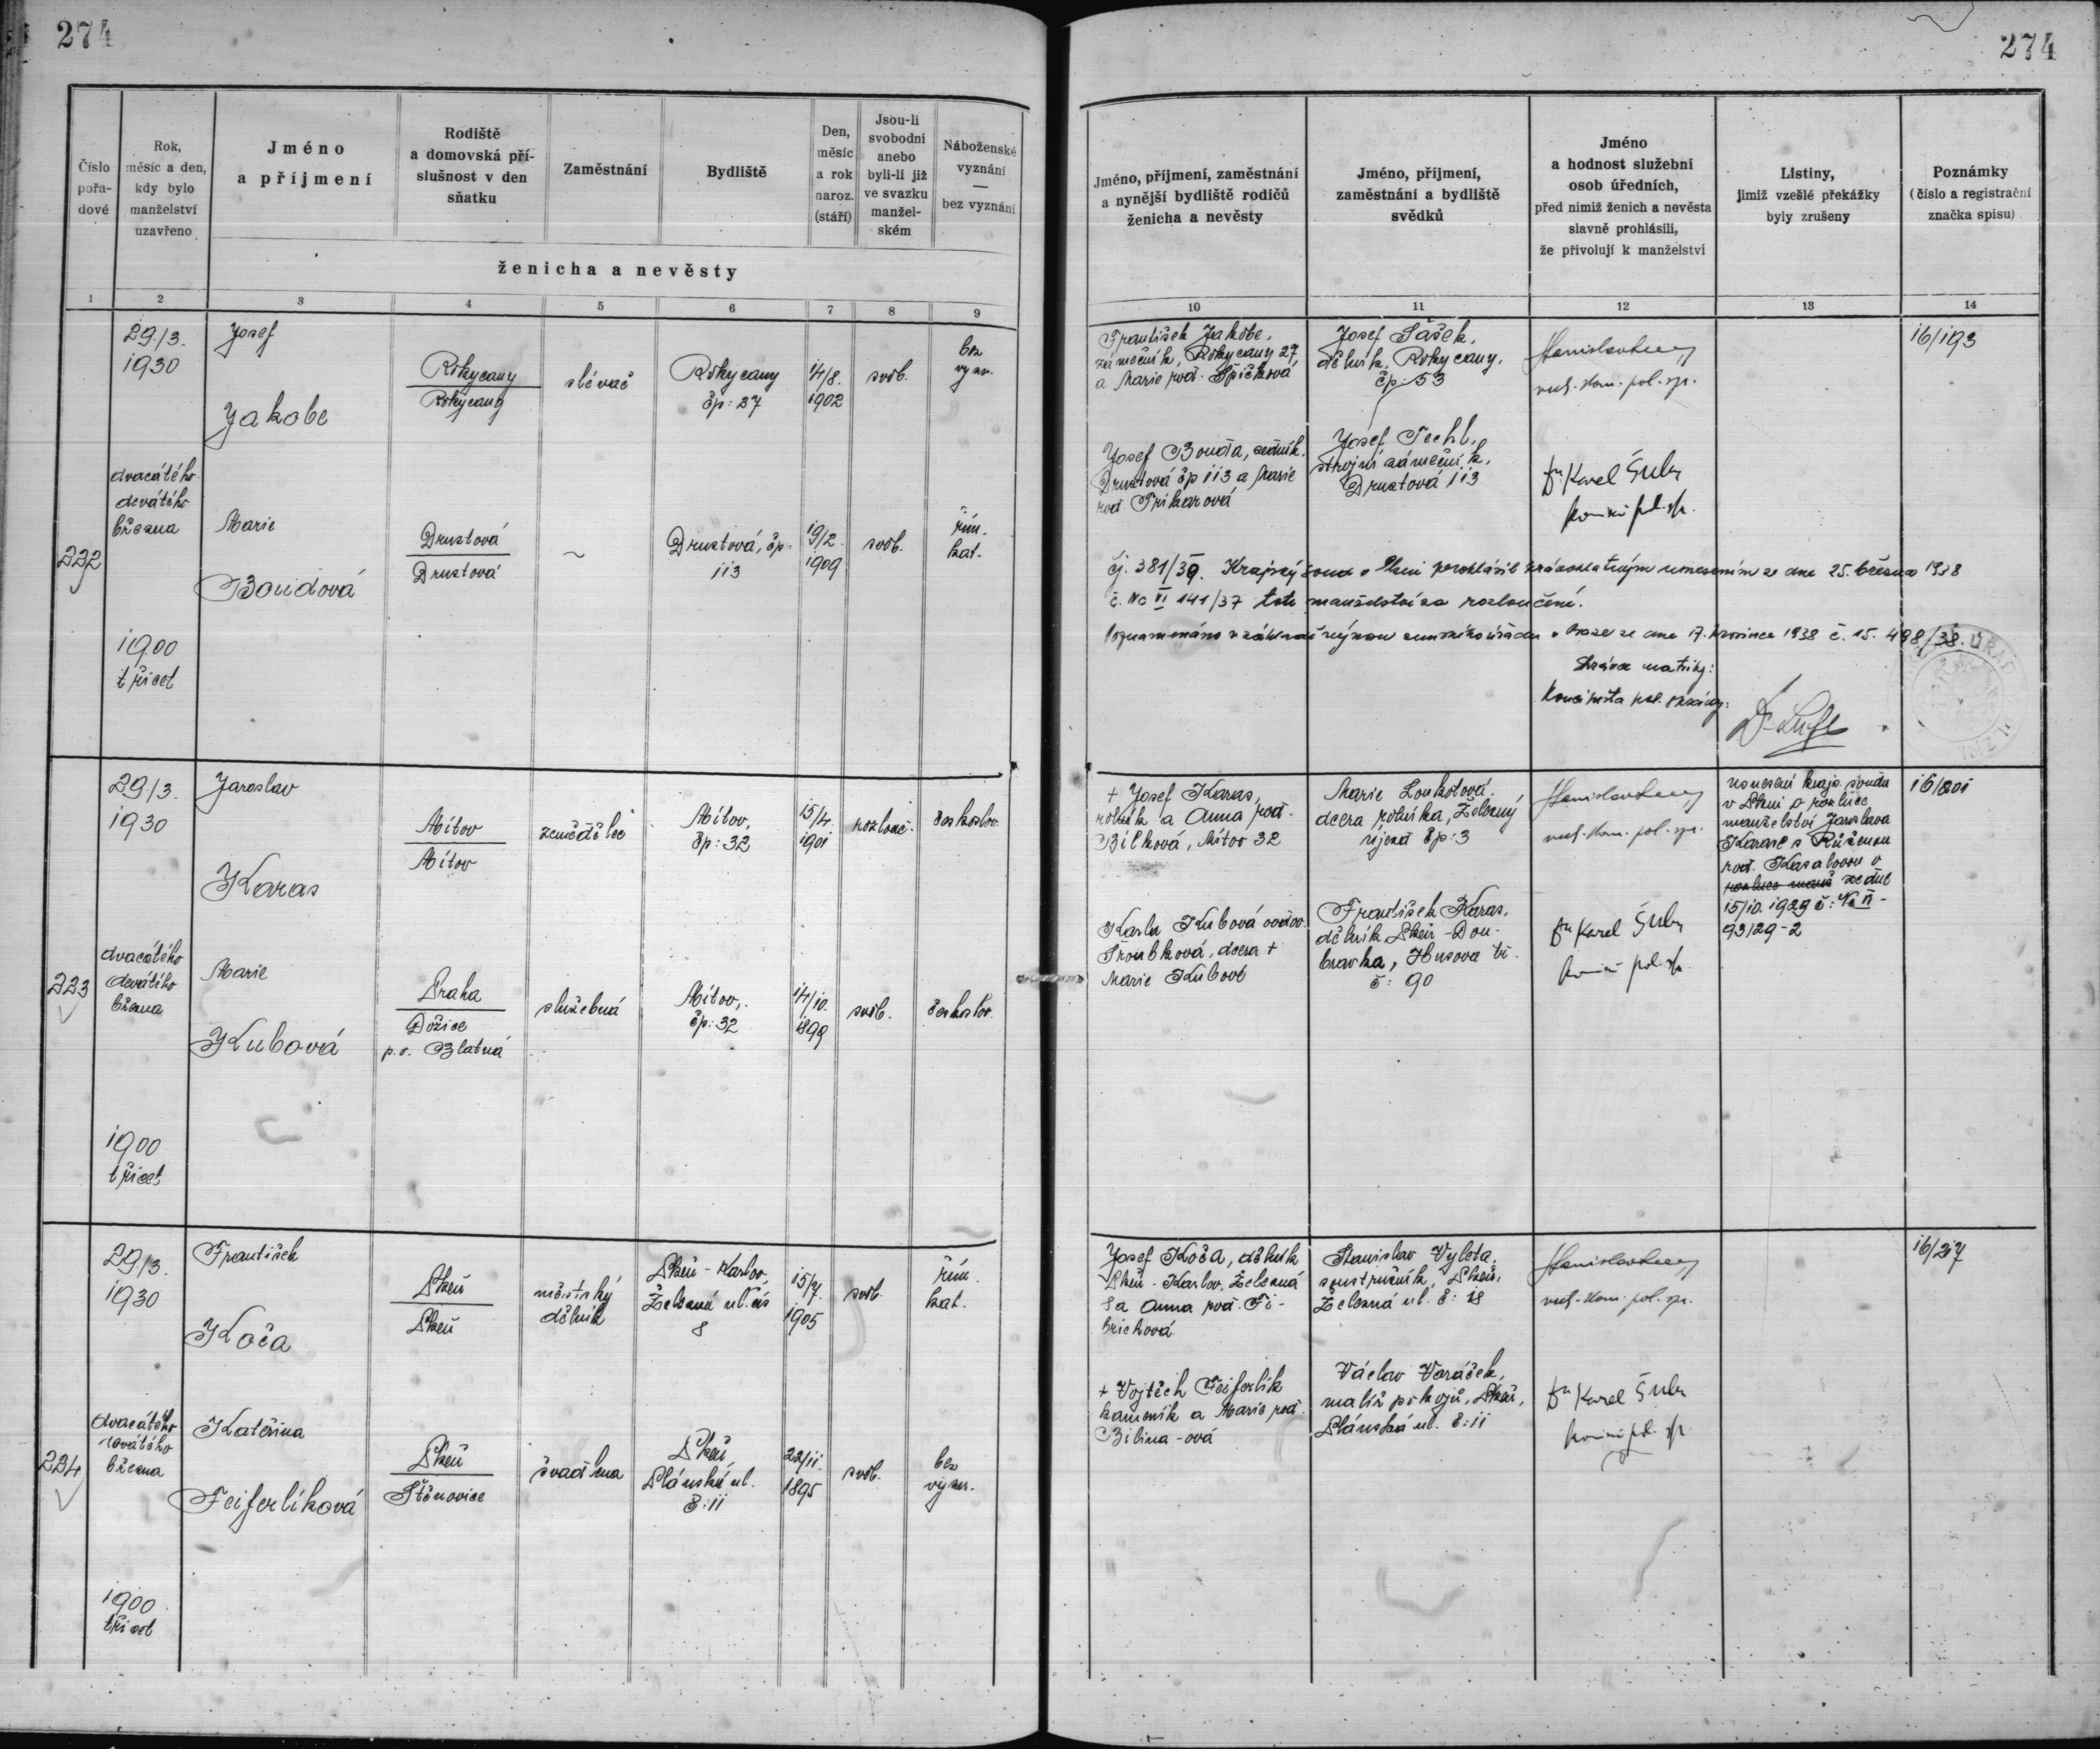 274
274
Číslo
pořa-
dové
Rok,
měsíc a den,
kdy bylo
manželství
uzavřeno
Jméno
a příjmení
Rodiště
a domovská pří-
slušnost v den
sňatku
Zaměstnání
Bydliště
Den,
měsíc
a rok
naroz.
(stáří)
Jsou-li
svobodni
anebo
byli-li již
ve svazku
manžel-
ském
Náboženské
vyznání
—
bez vyznání
ženicha a nevěsty
Jméno, příjmení, zaměstnání
a nynější bydliště rodičů
ženicha a nevěsty
Jméno, příjmení,
zaměstnání a bydliště
svědků
Jméno
a hodnost služební
osob úředních,
před nimiž ženich a nevěsta
slavně prohlásili,
že přivolují k manželství
Listiny,
jimiž vzešlé překážky
byly zrušeny
Poznámky
(číslo a registrační
značka spisu)
1 2 3 4 5 6 7 8 9 10 11 12 13 14
222
29./3.
1930
dvacátého
devátého
března
1900
třicet
Josef
Jakobe
Rokycany
Rokycany
slévač
Rokycany
čp: 27
14/8.
1902
svob.
bez
vyzn.
Marie
Boudová
Drustová
Drustová
~
Drustová, čp.
113
19/2.
1909
svob.
řím.
kat.
František Jakobe,
zámečník, Rokycany 27,
a Marie roz. Špičková
Josef Bouda,
Drustová čp 113 a Marie
roz.
Josef Šašek,
dělník, Rokycany,
čp: 53
Josef Techl,
strojní zámečník,
Drustová 113
pol. sp.
Dr Karel
16/193
čj. 381/39. Krajský soud v Plzni prohlásil pravoplatným usnesením ze dne 25. března 1938
č. Nc VI 141/37 toto manželství za rozloučené.
Poznamenáno v základě výnosu zemského úřadu v Praze ze dne 17. prosince 1938 č. 15. 498/38.
Správce matriky:
Koncipista pol. správy:
223
29/3.
1930
dvacátého
devátého
března
1900
třicet
Jaroslav
Karas
Mítov
Mítov
zemědělec
Mítov,
čp: 32
15/4.
1901
rozlouč.
českoslov.
Marie
Kubová
Praha
Dožice
p. o. Blatná
služebná
Mítov,
čp: 32
14/10.
1899
svob.
českoslov.
+ Josef Karas,
rolník a Anna roz.
Bílková, Mítov 32
Karla Kubová ovdov.
Šroubková, dcera +
Marie Kubové
Marie Loukotová,
dcera rolníka, Železný
újezd čp: 3
František Karas,
dělník Plzeň - Dou-
bravka, Husova tř.
č: 90
pol. sp.
Dr Karel
usnesení krajs. soudu
v Plzni o rozluce
manželství Jaroslava
Karase s Růženou
roz. Kasalovou
ze dne
15/10. 1929 č: Nc II -
93/29-2
16/201
224
29/3.
1930
dvacátého
devátého
března
1900
třicet
František
Koča
Plzeň
Plzeň
městský
dělník
Plzeň - Karlov,
Železná ul. čís
8
15/7.
1905
svob.
řím.
kat.
Kateřina
Feiferlíková
Plzeň
Štěnovice
švadlena
Plzeň,
Plánská ul.
č: 11
22/11.
1895
svob.
bez
vyzn.
Josef Koča, dělník
Plzeň - Karlov, Železná
8 a Anna roz. Fi-
brichová
+ Vojtěch Feiferlík
kameník a Marie roz.
Bílina-ová
Stanislav Vyleta,
soustružník, Plzeň,
Železná ul. č: 18
Václav Voráček,
malíř pokojů, Plzeň,
Plánská ul. č: 11
pol. sp.
Dr Karel
16/217